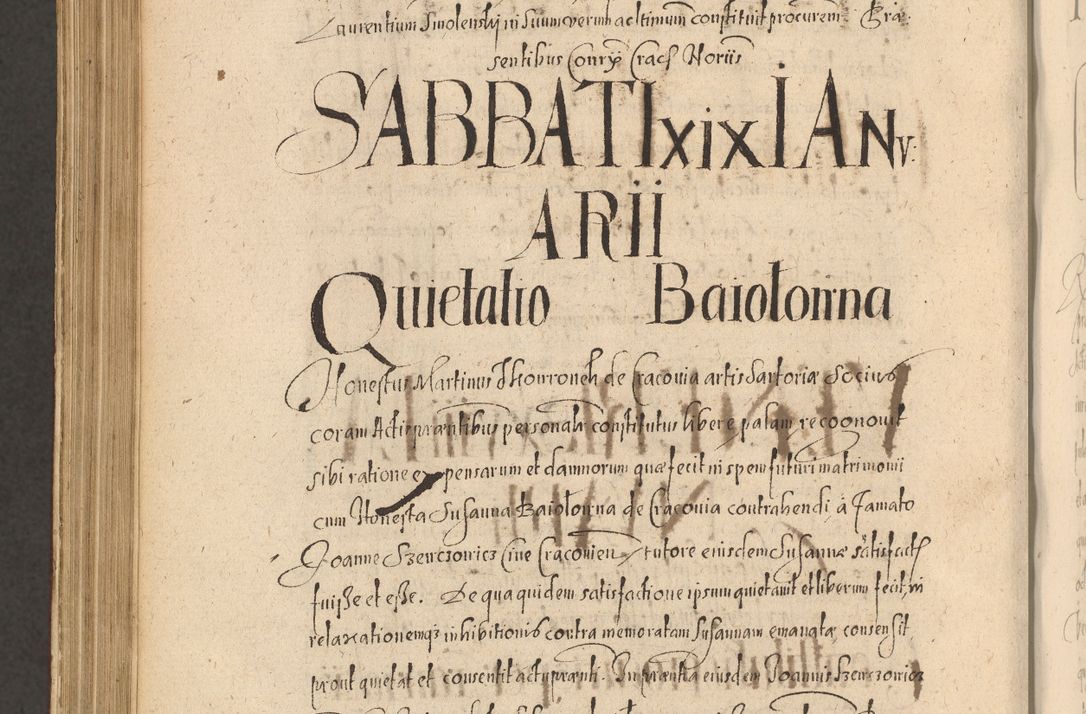 Laurentium Smolenskj in Suum verum ac ltimum constituit procurem. Pra-
sentibus Conry Cracs Noriis
SABBATI XIX IANV:
ARII
Quietatio Baiołonna
Honestus Martinus Thorroneh de Cracovia artis Sartoriæ Socius
coram Actis præntibus personalr constitutus libere palam recognovit
sibi ratione expensarum et damnorum quæ fecit in spem futuri matrimonii
cum Honesta Susanna Baiołonna de Cracovia contrahendi, à Famato
Joanne Szenczowicz Cive Cracovien tutore eiusdem Susannæ satisfactū
fuisse et esse. De qua quidem satisfactione ipsum quietavit et liberum fecit, in
relaxationemq3 inhibitionis contra memoratam Susannam emanatæ consensit
prout quietat et consentit actu prænti. In præntia eiusdem Joannis Szenczowicz